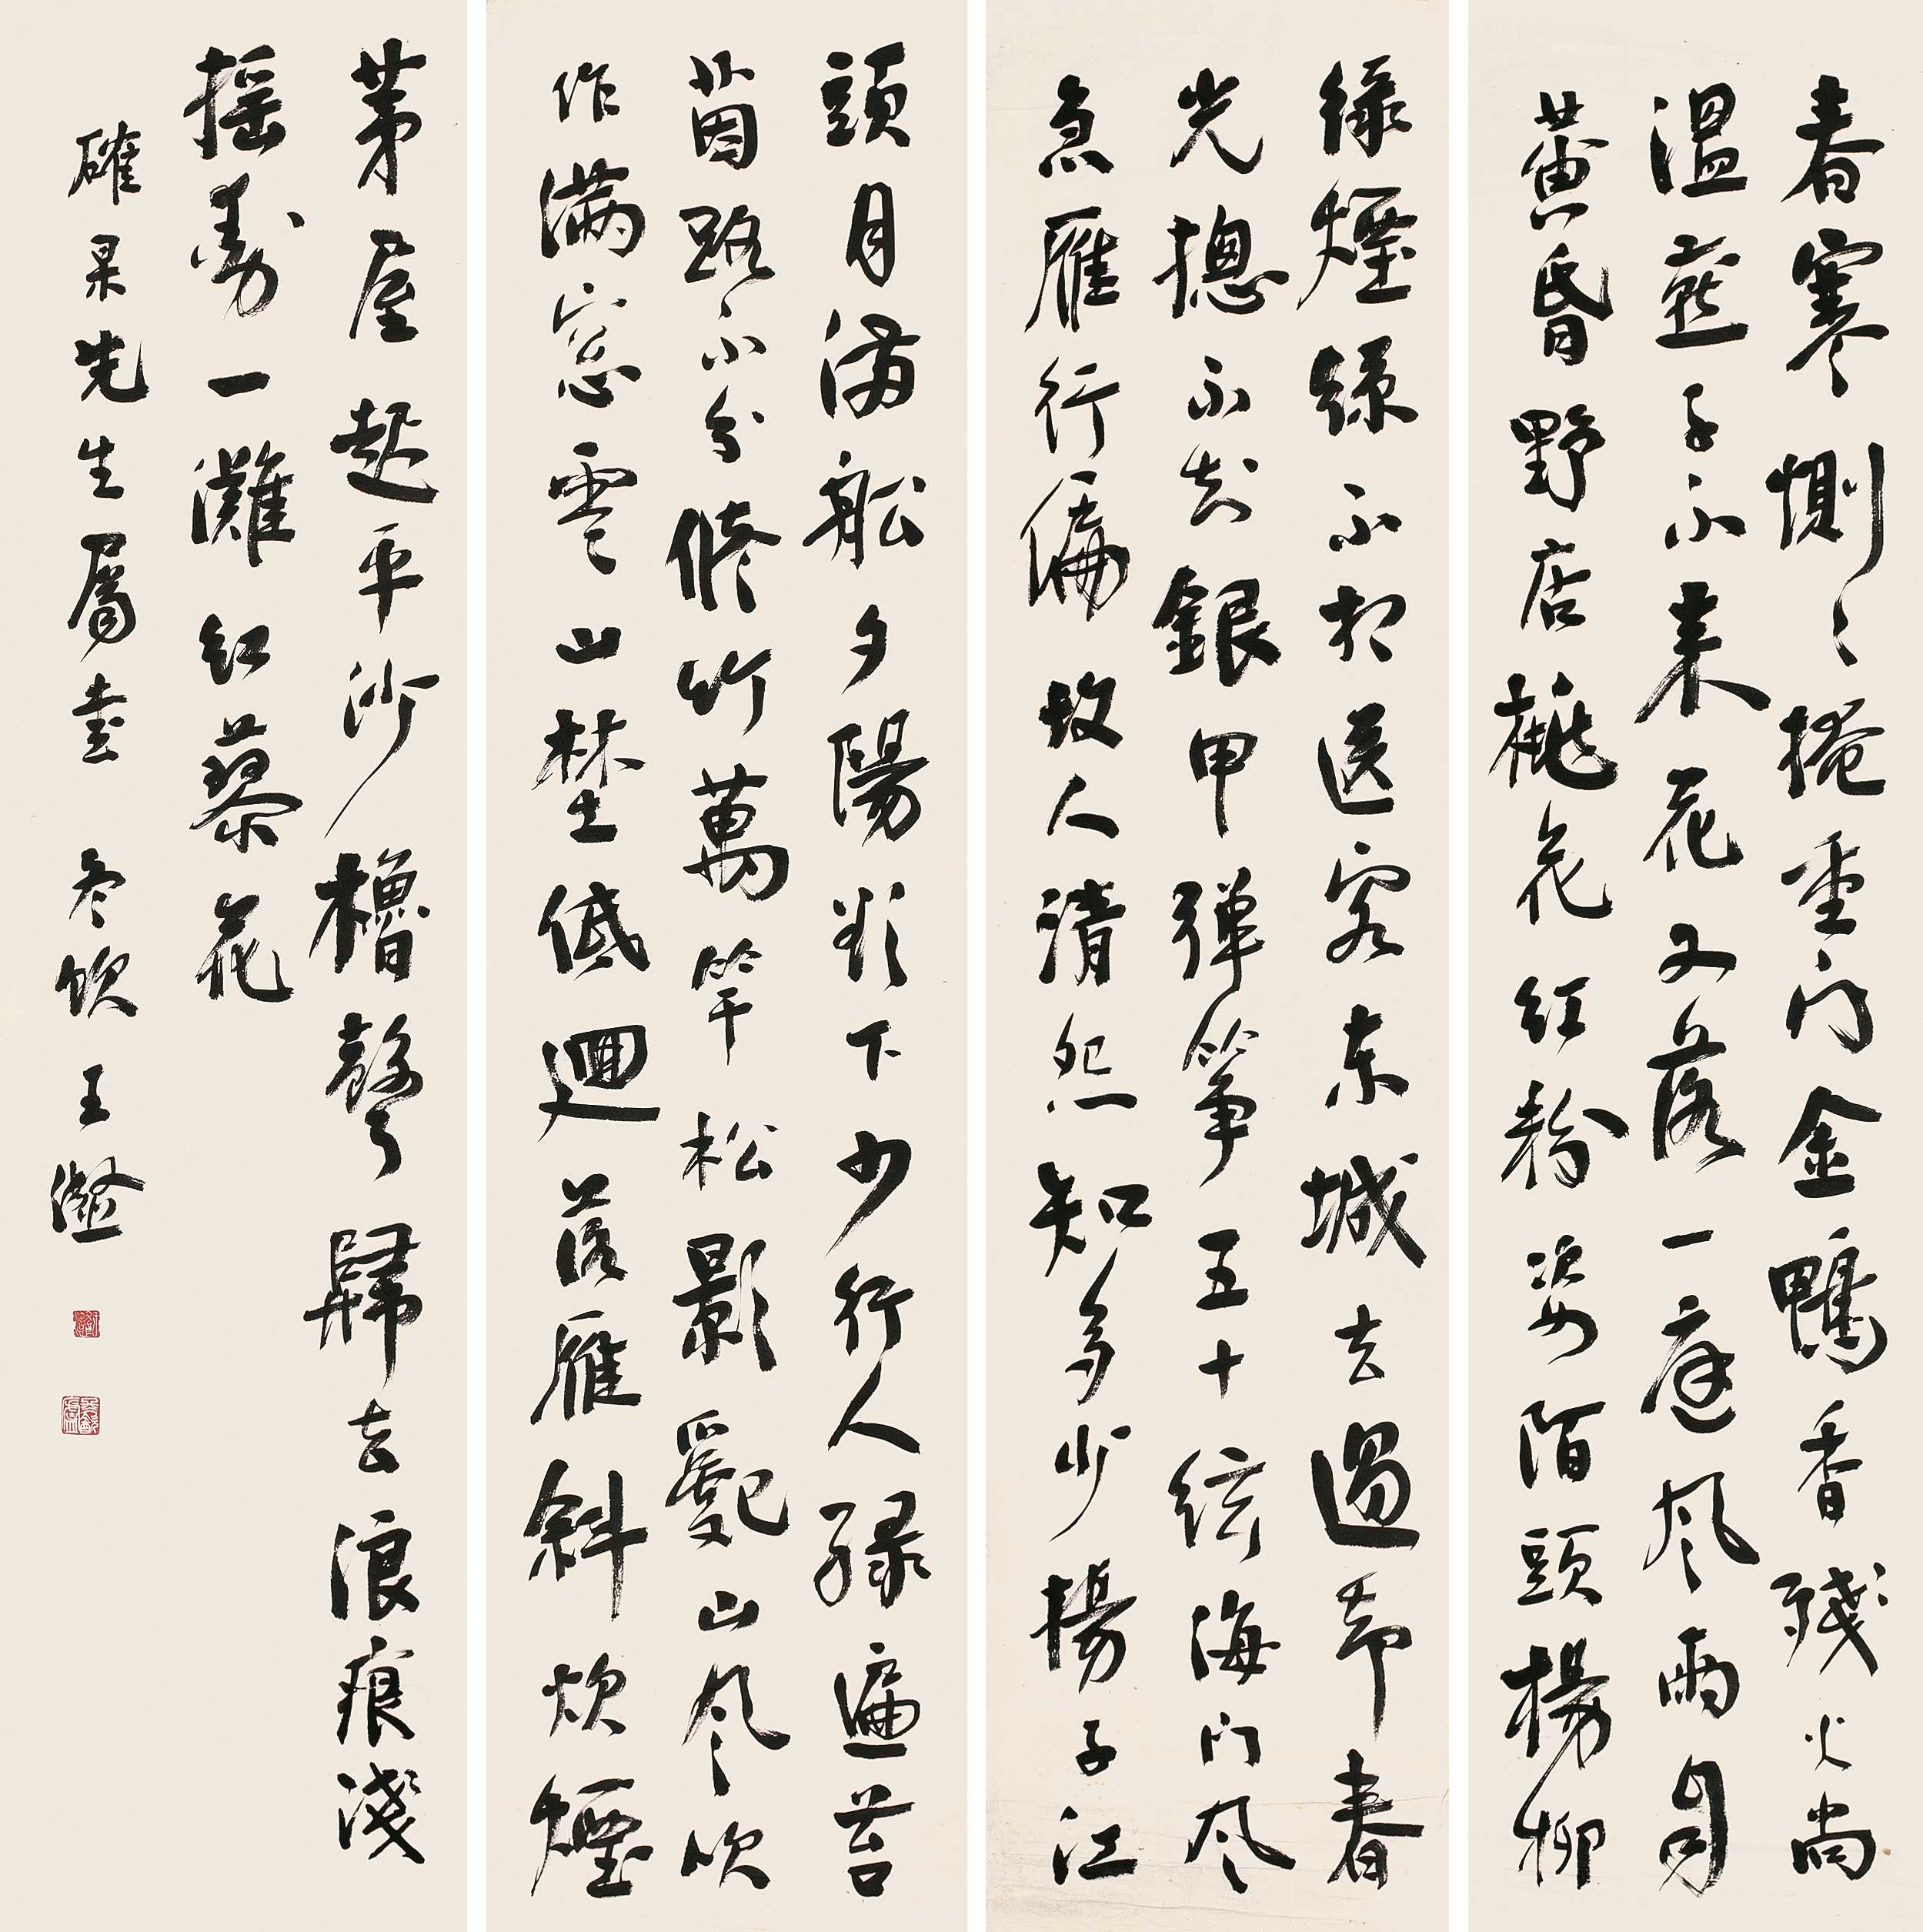 春寒惻〻掩重門金鴨香殘火尚
溫燕子不來花又落一庭風雨自
黃昏野店桃花紅粉姿陌頭楊柳
綠煙絲不送客東城去過卻春
光摠不知銀甲彈箏五十弦海門風
急雁行偏故人清怨知多少揚子江
頭月滿船夕陽欲下少行人綠遍苔
茵路不分修竹萬竿松影亂山風吹
作滿窗雲山埜低迴落雁斜炊煙
茅屋起平沙櫓聲歸去浪痕淺
搖動一灘紅蓼花
確果先生屬書 冬飲 王瀣